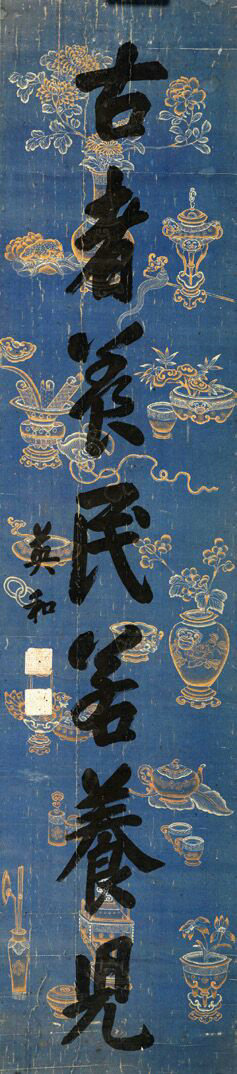 古者养民若養兒
英和